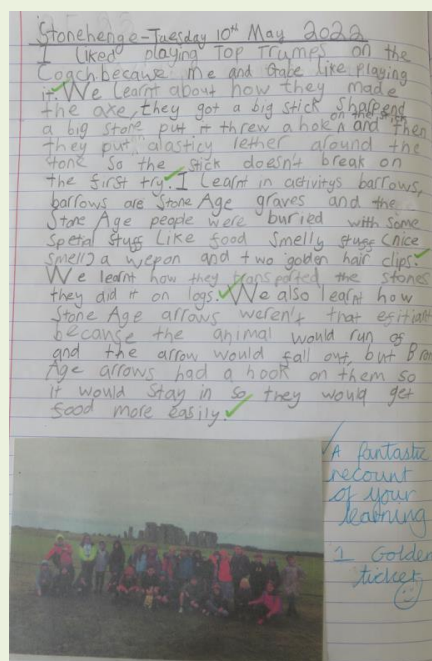 Stonehenge - Tuesday 10th May 2022
I liked playing Top Trumps on the
Coach because me and Gabe like playing
it. We learnt about how they made
the axe, they got a big stick sharpend
a big stone put it threw a hole on the stick and then
they put alasticy lether around the
stone so the stick doesn't break on
the first try. I learnt in activitys barrows,
barrows are Stone Age graves and the
Stone Age people were buried with some
spetal stugg like food smelly stugg (nice
smell) a wepon and two golden hair clips.
We learnt how they transported the stones
they did it on logs. We also learnt how
Stone Age arrows weren't that efitiant
because the animal would run of
and the arrow would fall out, but Bron
Age arrows had a hook on them so
it would stay in so they would get
food more easily.
A fantastic
recount
of your
learning
1 Golden
ticket